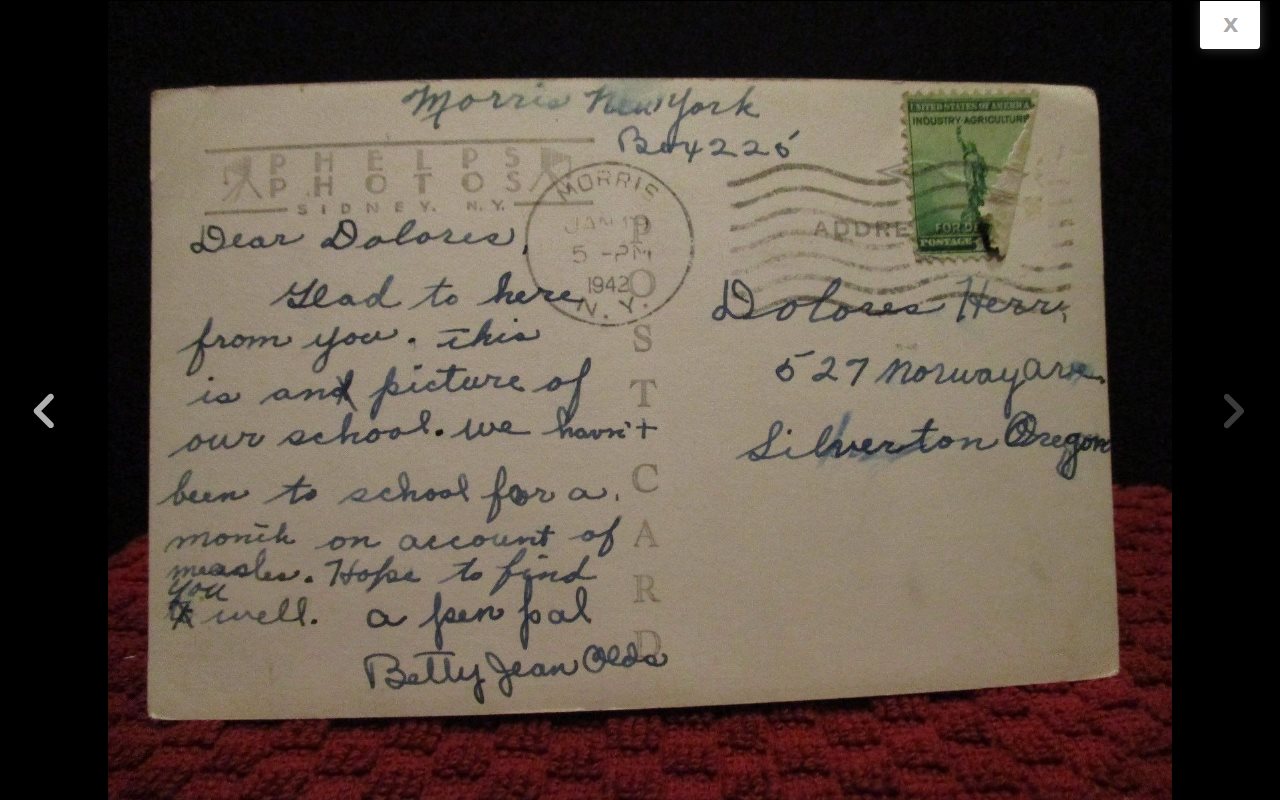 Morris New York
Box 225
PHELPS
PHOTOS
SIDNEY, N.Y.
MORRIS
JAN
5 -PM
1942
N. Y.
UNITED STATES OF AMERICA
INDUSTRY·AGRICULTURE
FOR DE
POSTAGE
ADDRE
POST CARD
Dear Dolores,
Glad to here
from you. This
is an picture of
our school. we havn't
been to school for a
month on account of
measles. Hope to find
you
well. a pen pal
Betty Jean Olds
Dolores Herr,
527 Norway ave.
Silverton Oregon
x